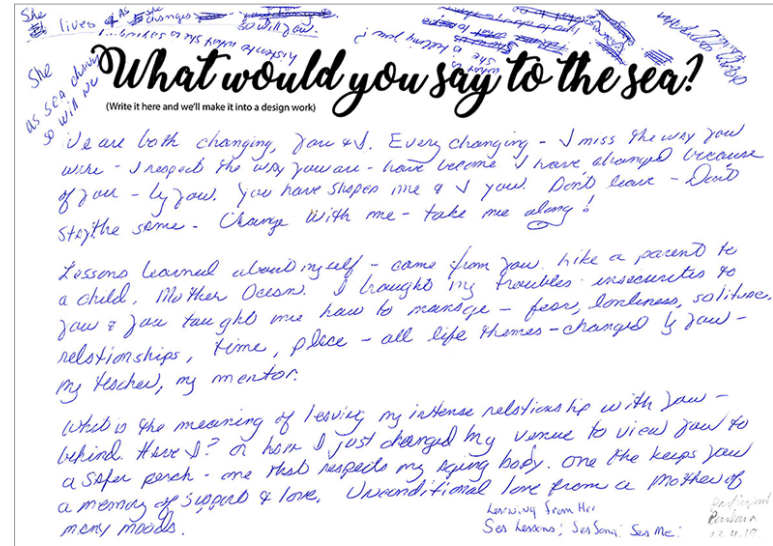 She lives & as she changes so will you.
She
as sea changes
so will we
What would you say to the sea?
(Write it here and we'll make it into a design work)
We are both changing, you & I. Every changing - I miss the way you
were - I respect the way you are - have become I have changed because
of you - by you. You have shaped me & I you. Don't leave - Don't
stay the same - Change with me - take me along!
Lessons learned about myself - came from you. Like a parent to
a child. Mother Ocean. I brought my troubles insecurities to
you & you taught me how to manage - fear, loneliness, solitude,
relationships, time, place - all life themes - changed by you -
my teacher, my mentor.
What is the meaning of leaving my intense relationship with you -
behind. Have I? or have I just changed my venue to view you to
a safer perch - one that respects my aging body. One the keeps you
a memory of support & love. Unconditional love from a Mother of
many moods.
Learning from Her
Sea Lessons; Sea Song: Sea Me: